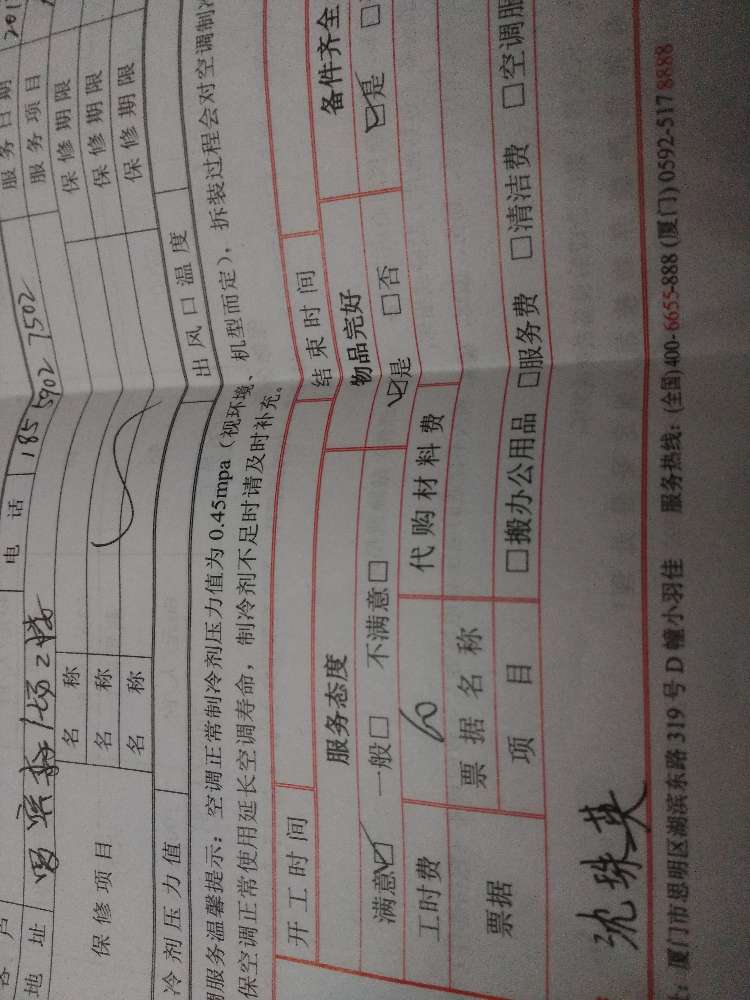 服务日期 201
客户 电话 185 5902 7502 服务项目
地址
保修项目 名称 保修期限
名称 保修期限
名称 保修期限
冷剂压力值 出风口温度
调服务温馨提示：空调正常制冷剂压力值为 0.45mpa（视环境、机型而定），拆装过程会对空调制冷
保空调正常使用延长空调寿命，制冷剂不足时请及时补充。
开工时间 结束时间
服务态度 物品完好 备件齐全
满意☑ 一般□ 不满意□ ☑是 □否 ☑是 □
工时费 60 代购材料费
票据 票据名称
项目 □搬办公用品 □服务费 □清洁费 □空调服
沈珠英
：厦门市思明区湖滨东路 319 号 D 幢小羽佳 服务热线：(全国)400-6655-888 (厦门) 0592-517 8888